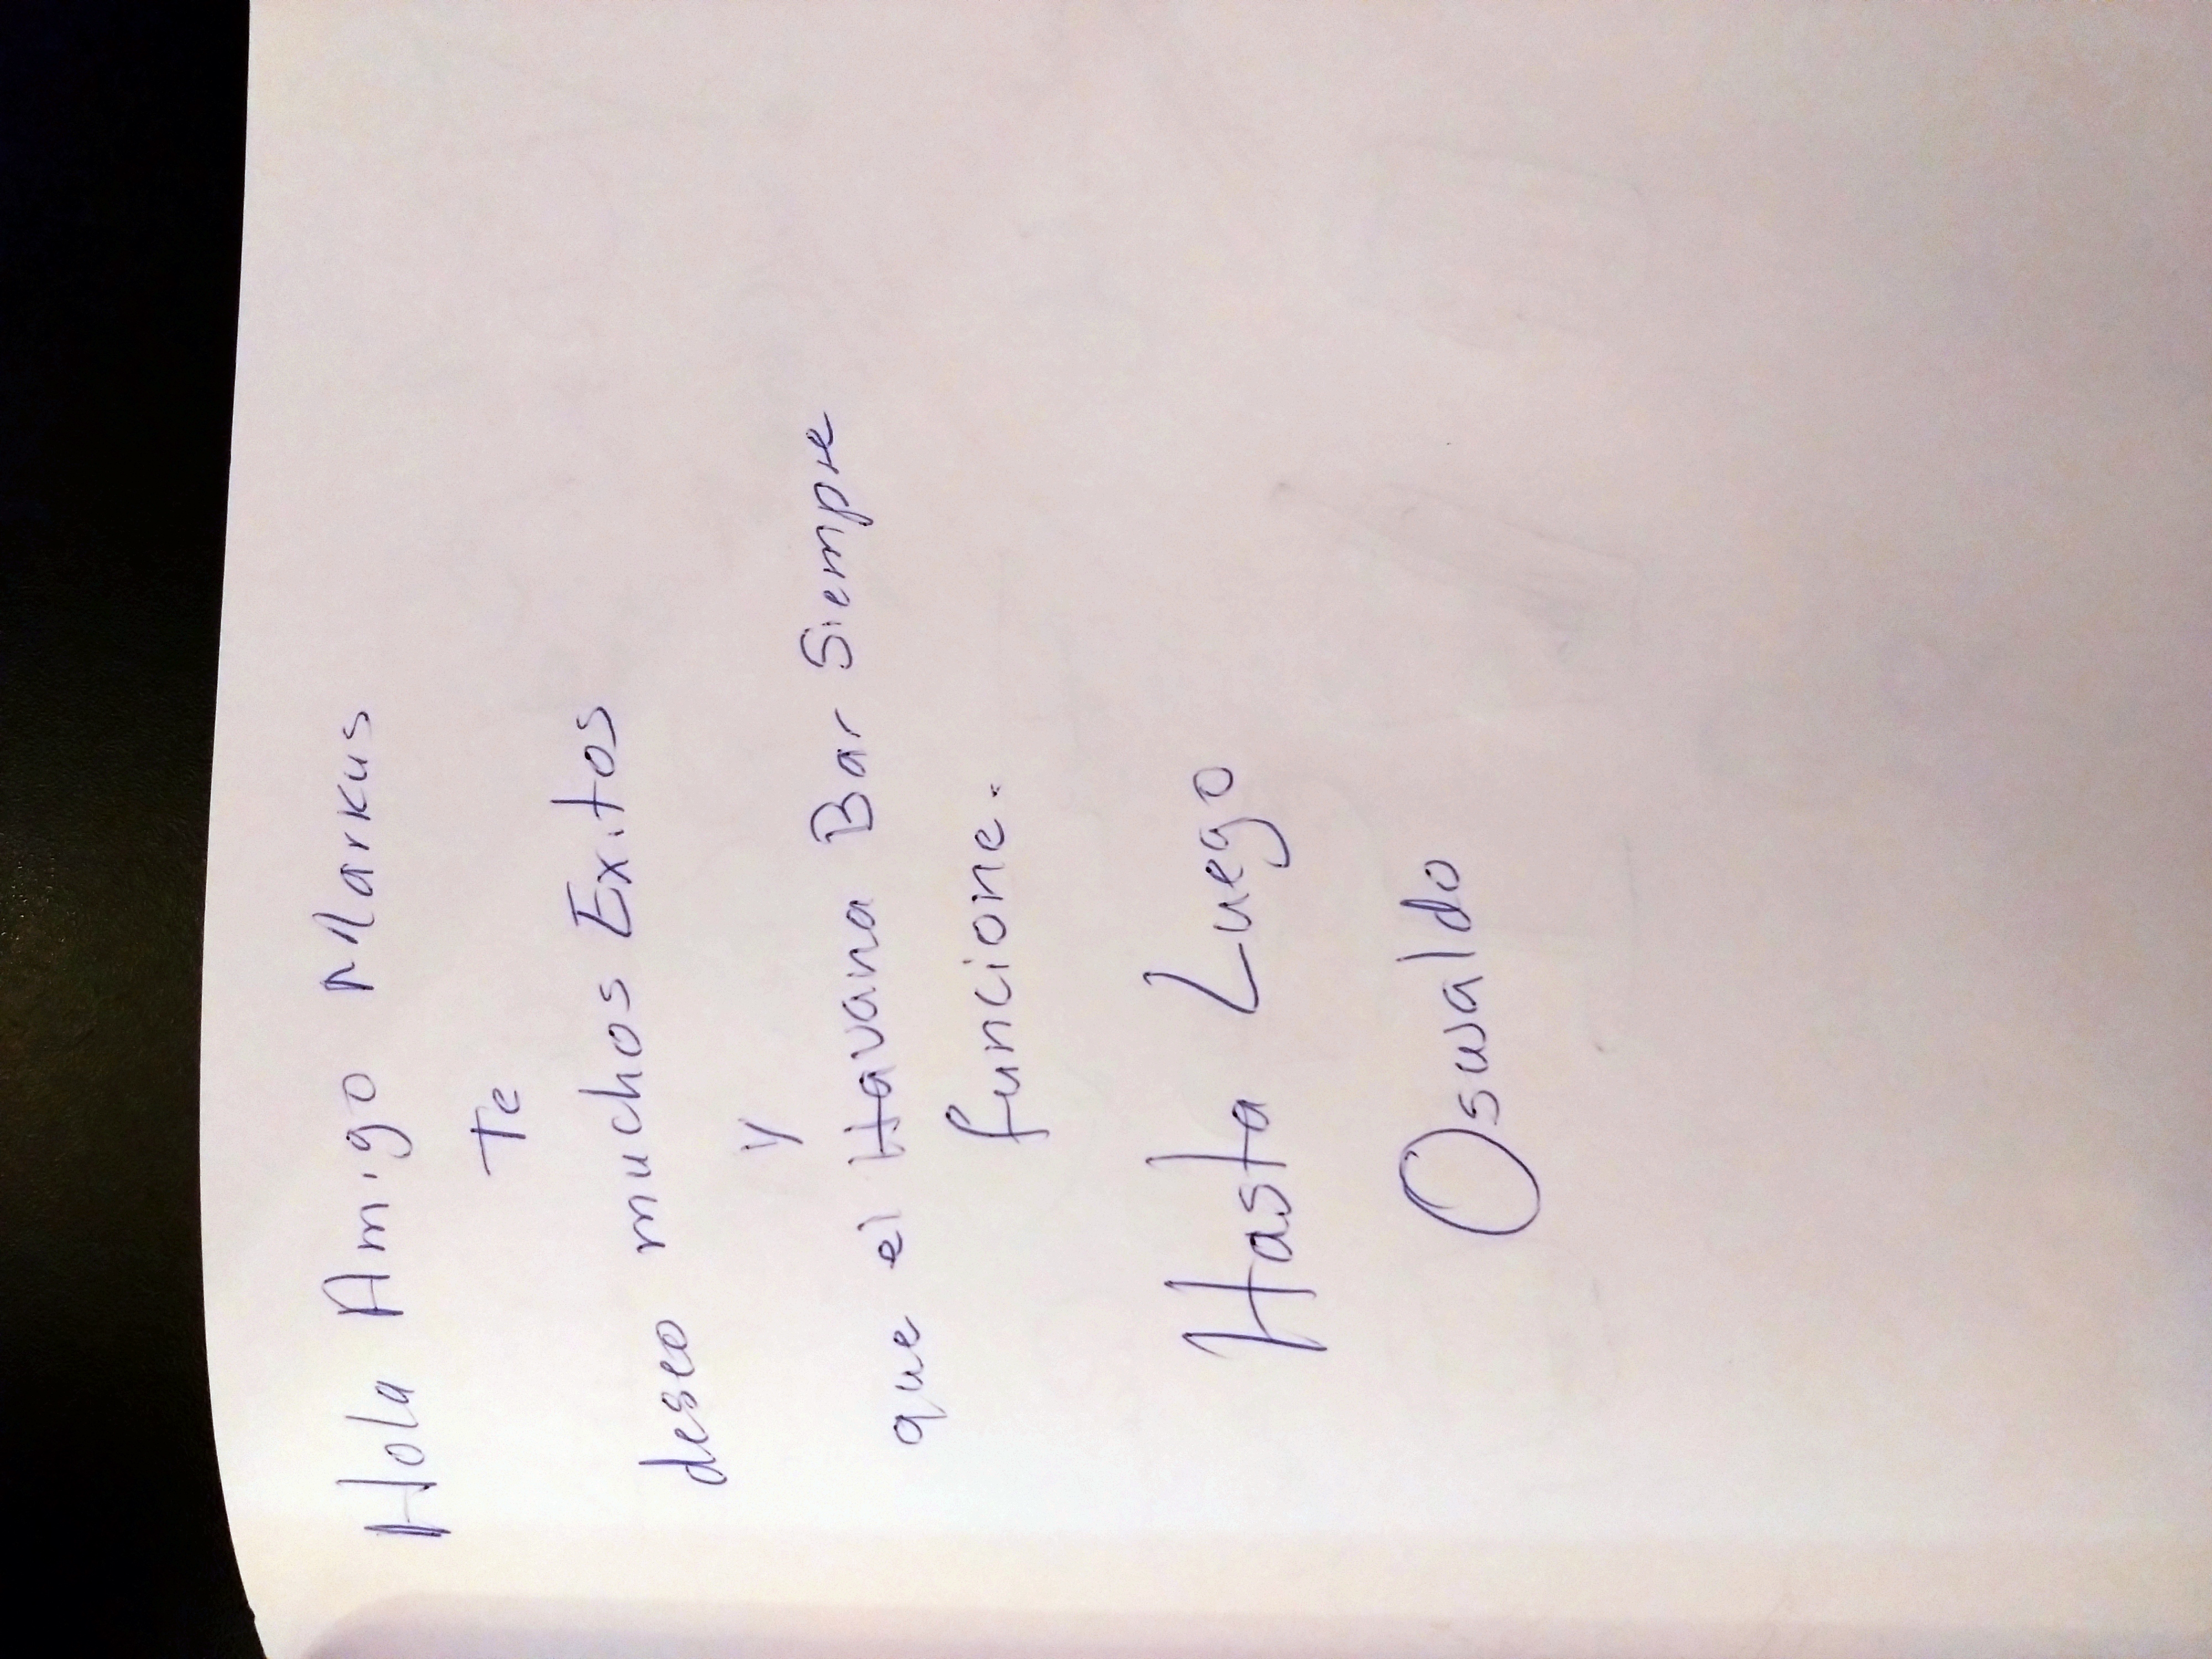 Hola Amigo Markus
Te
deseo muchos Exitos
y
que el Havana Bar Siempre
funcione.
Hasta Luego
Osuwaldo